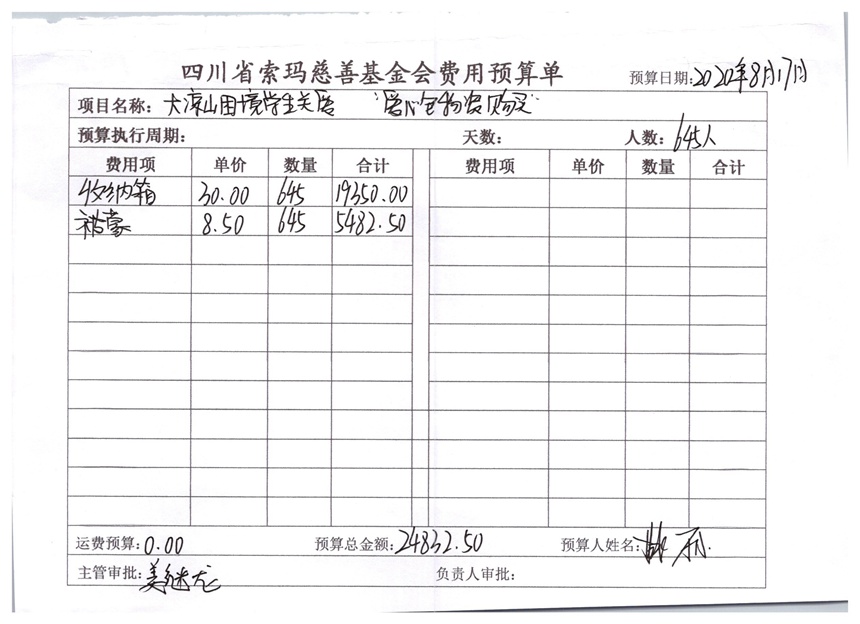 四川省索玛慈善基金会费用预算单
预算日期:2020年8月17日
项目名称: 大凉山困境学生关爱 "爱心包物资购买"
预算执行周期: 天数: 人数: 645人
费用项 单价 数量 合计 费用项 单价 数量 合计
收纳箱 30.00 645 19350.00
8.50 645 5482.50
运费预算: 0.00 预算总金额: 24832.50 预算人姓名:
主管审批: 负责人审批: